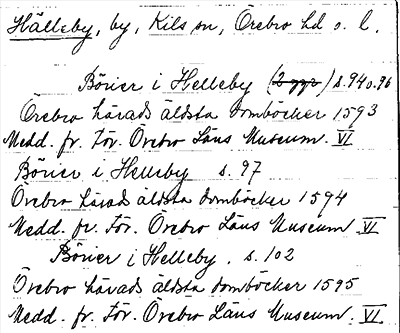 Hälleby, by, Kils sn, Örebro hd o. l.
Börier i Helleby (2 ggr) s. 94 o. 96
Örebro härads äldsta domböcker 1593
Medd. fr. För. Örebro Läns Museum. VI
Börier i Helleby s. 97
Örebro härad äldsta domböcker 1594
Medd. fr. För. Örebro Läns Museum. VI
Börier i Helleby. s. 102
Örebro härads äldsta domböcker 1595
Medd. fr. För. Örebro Läns Museum. VI.